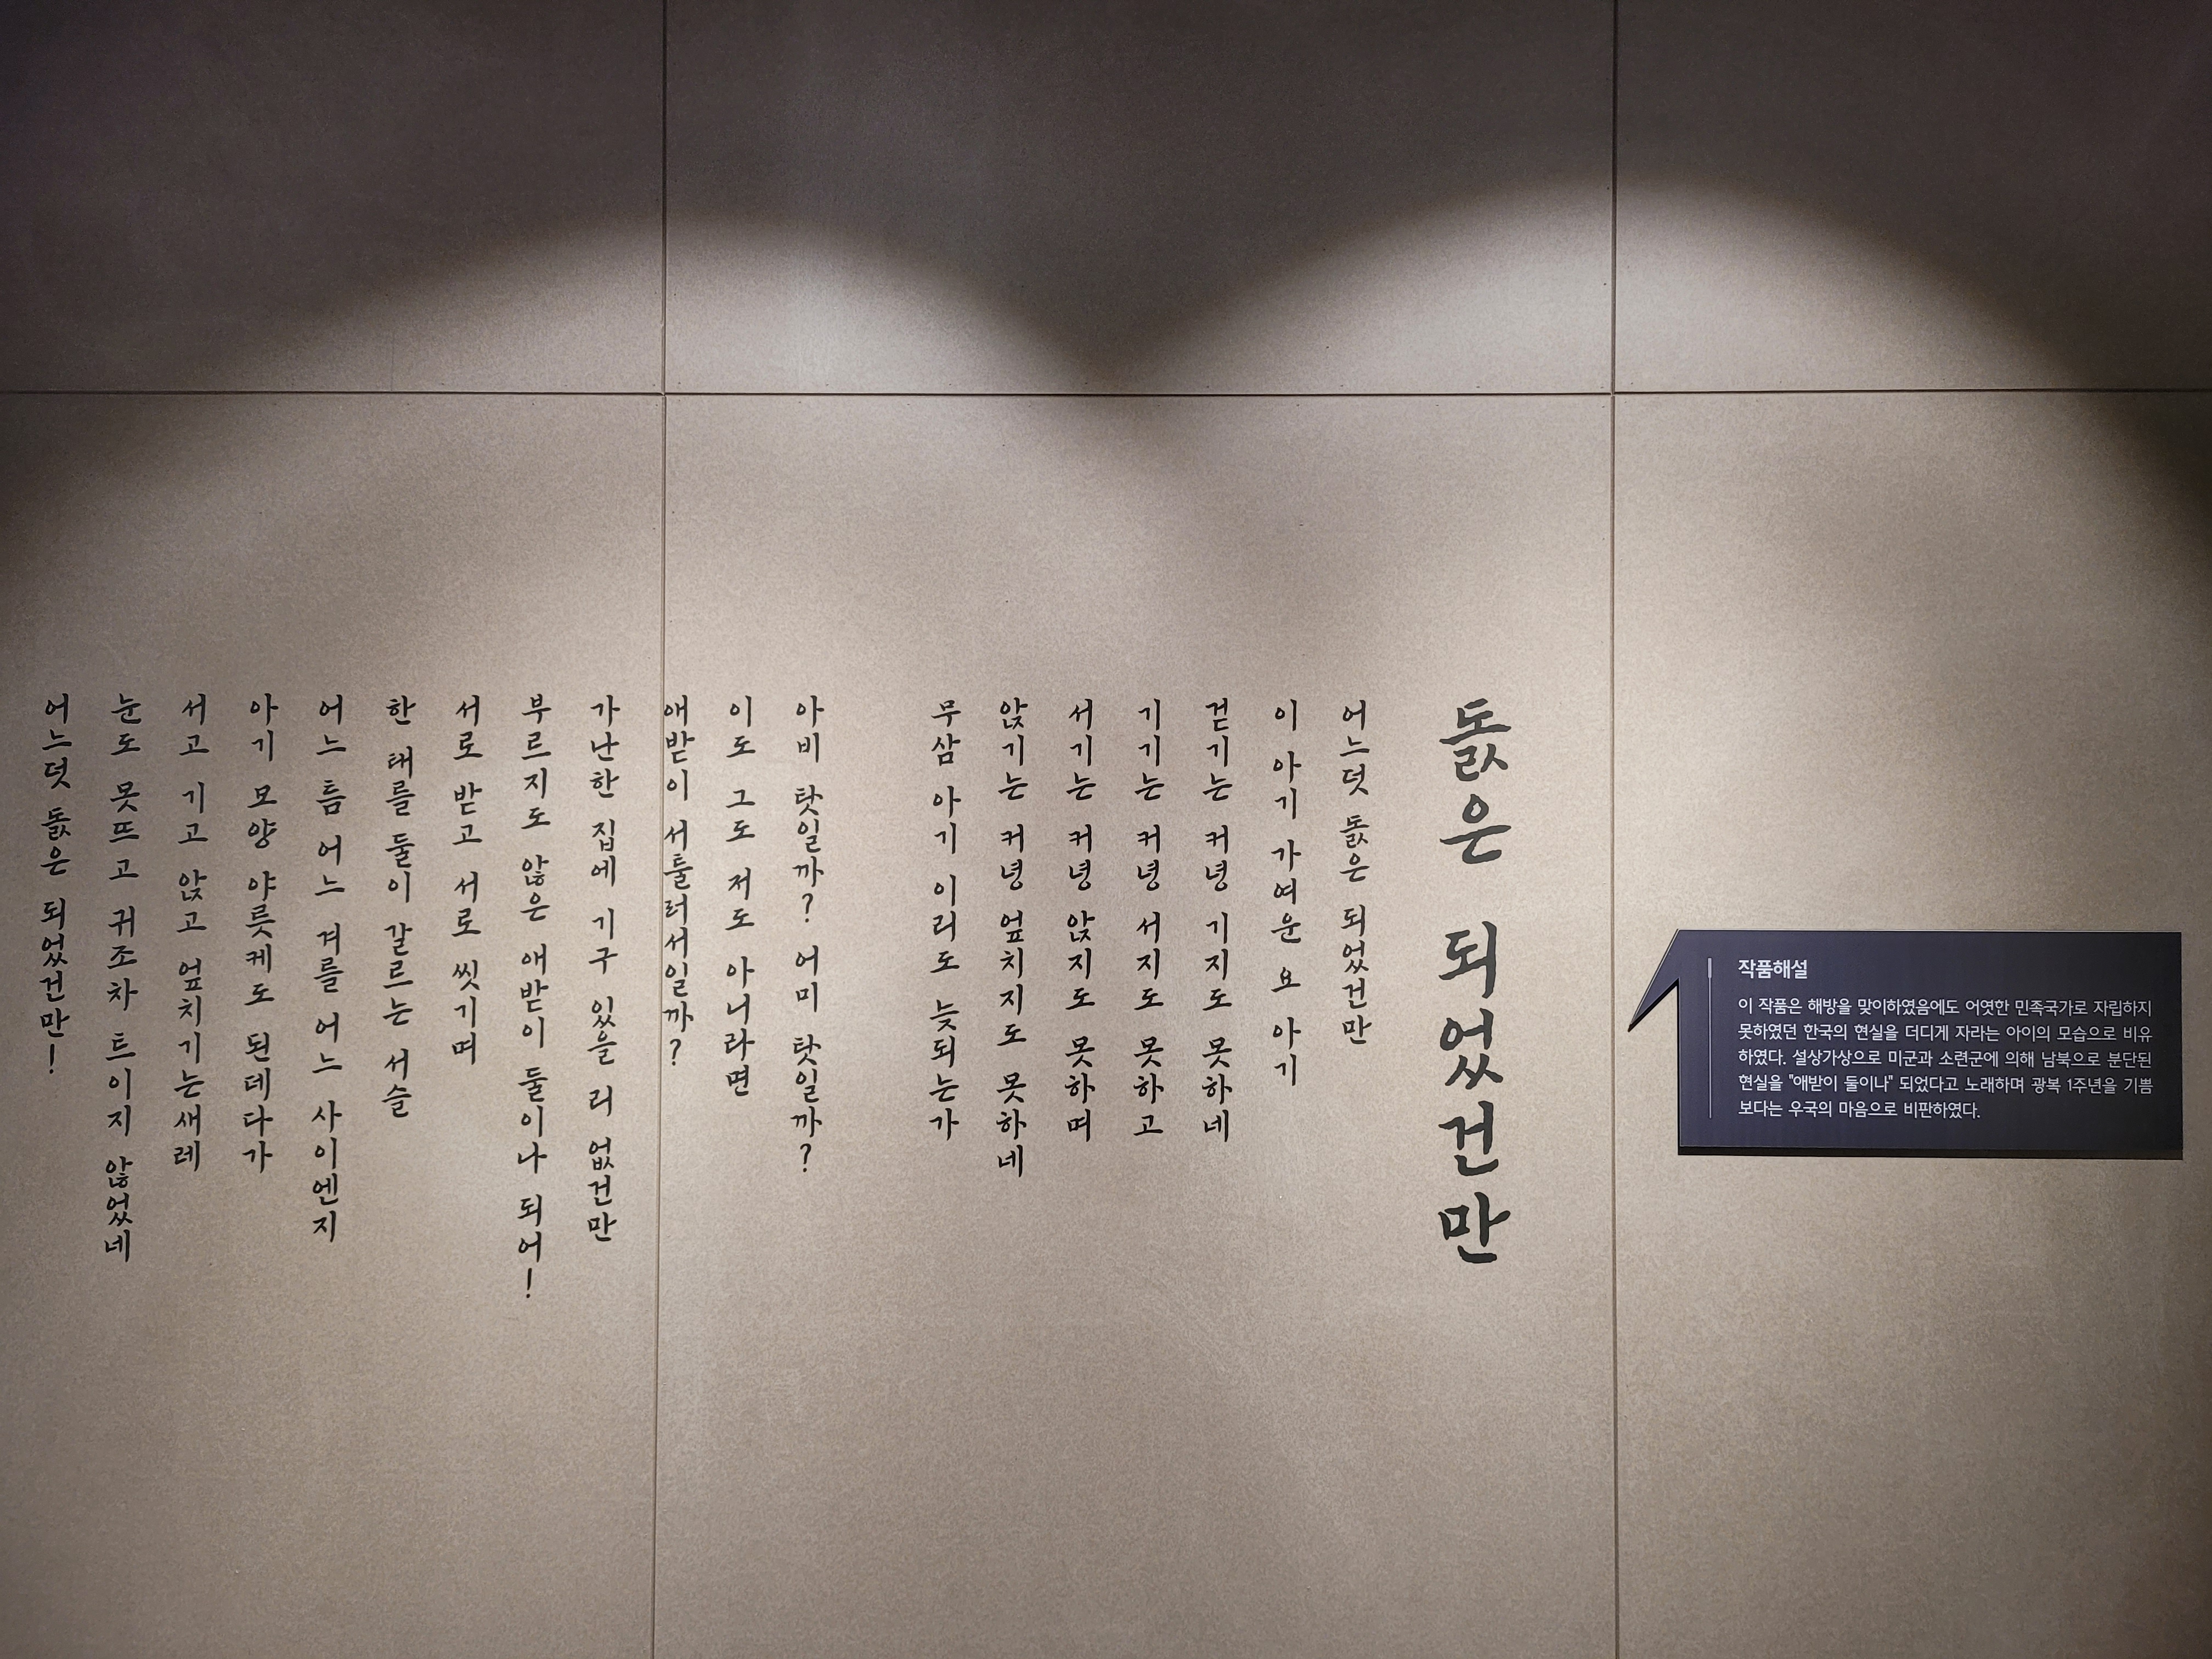 돐은 되었건만
어느덧 돐은 되었건만
이 아기 가여운 요 아기
걷기는 커녕 기지도 못하네
기기는 커녕 서지도 못하고
서기는 커녕 앉지도 못하며
앉기는 커녕 엎치지도 못하네
무삼 아기 이리도 늦되는가
아비 탓일까? 어미 탓일까?
이도 그도 저도 아니라면
애받이 서툴러서일까?
가난한 집에 기구 있을 리 없건만
부르지도 않은 애받이 둘이나 되어!
서로 받고 서로 씻기며
한 태를 둘이 갈르는 서슬
어느 틈 어느 겨를 어느 사이엔지
아기 모양 야릇케도 된데다가
서고 기고 앉고 엎치기는새레
눈도 못뜨고 귀조차 트이지 않었네
어느덧 돐은 되었건만!
작품해설
이 작품은 해방을 맞이하였음에도 어엿한 민족국가로 자립하지
못하였던 한국의 현실을 더디게 자라는 아이의 모습으로 비유
하였다. 설상가상으로 미군과 소련군에 의해 남북으로 분단된
현실을 "애받이 둘이나" 되었다고 노래하며 광복 1주년을 기쁨
보다는 우국의 마음으로 비판하였다.